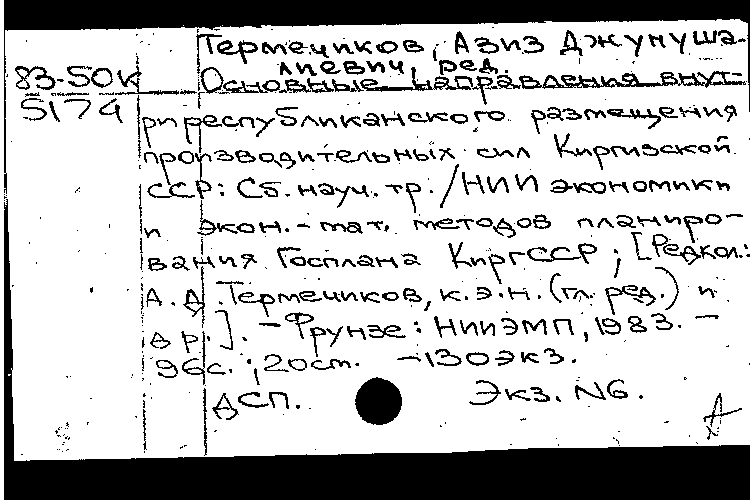 Термечиков, Азиз Джумуша-
лиевич, ред.
83-50к Основные направления внут-
5174
рireспубликанского размещения
производительных сил Киргизской
ССР: Сб. науч. тр. / НИИ экономики
и экон.-мат. методов планиро-
вания Госплана КиргССР; [Редкол.:
А. Д. Термечиков, к.э.н. (гл. ред.) и
др.]. - Фрунзе: НИИЭМП, 1983. -
96с.; 20см. - 130экз.
ДСП. Экз. N6.